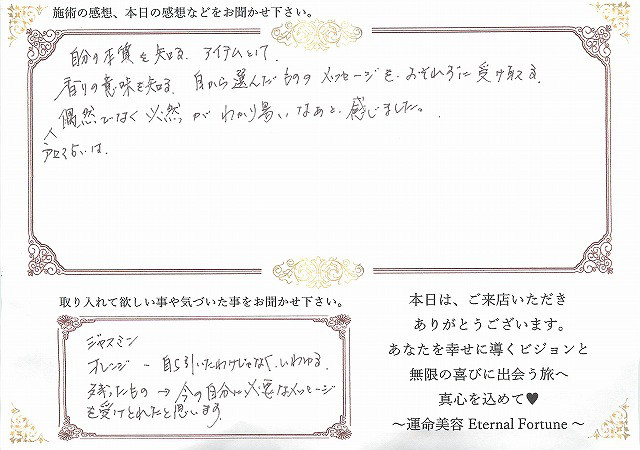 施術の感想、本日の感想などをお聞かせ下さい。
自分の本質を知る アイテムとして、
香りの意味を知る 自から選んだものの メッセージを 受け取る
偶然でなく 必然が わかり易いなぁと、感じました。
アロマ占いは、
取り入れて欲しい事や気づいた事をお聞かせ下さい。
ジャスミン
オレンジ ー 自ら引いたわけじゃなく、いわゆる、
残ったもの → 今の自分に必要なメッセージ
を受けとれたと思います。
本日は、ご来店いただき
ありがとうございます。
あなたを幸せに導くビジョンと
無限の喜びに出会う旅へ
真心を込めて♥
～運命美容 Eternal Fortune ～